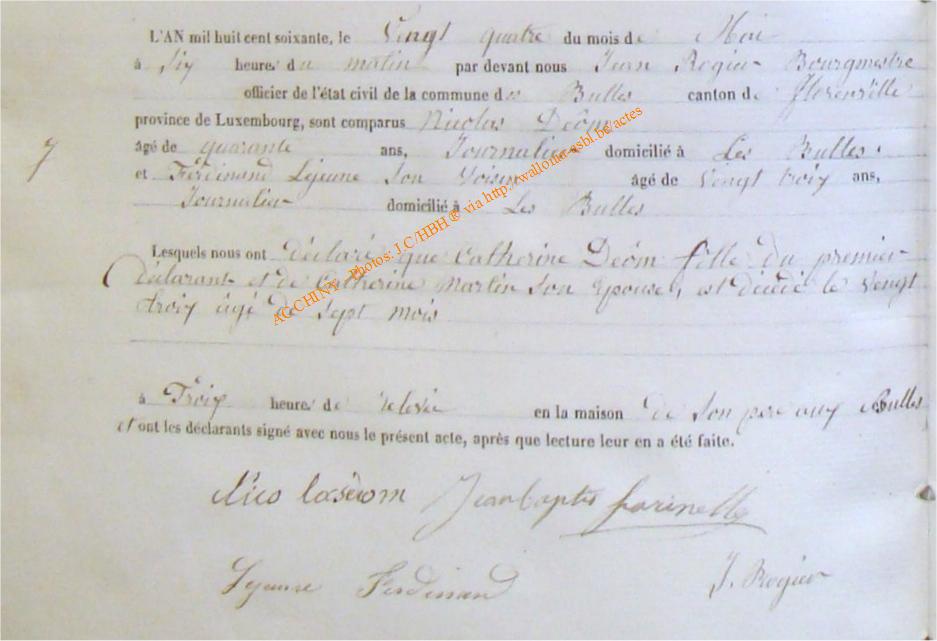 L'AN mil huit cent soixante, le Vingt quatre du mois de Mai
à Six heures du matin par devant nous Jean Rogier Bourgmestre
officier de l'état civil de la commune des Bulles canton de Florenville
province de Luxembourg, sont comparus Nicolas Deôm
âgé de quarante ans, Journalier domicilié à Les Bulles
7
et Ferdinand Lejeune Son Voisin âgé de Vengt troix ans,
Journalier domicilié à Les Bulles
Lesquels nous ont déclaré que Catherine Deôm fille du premier
déclarant et de Catherine Martin Son Epouse, est décédé le Vengt
troix âgé de Sept mois
à Troix heures de relevée en la maison de Son pere aux Bulles
et ont les déclarants signé avec nous le présent acte, après que lecture leur en a été faite.
Nico lasdeom Jean baptis
Lejeune Ferdinand J. Rogier
AGCHINY Photos: J.C/HBH® via http://wallonia-asbl.be/actes